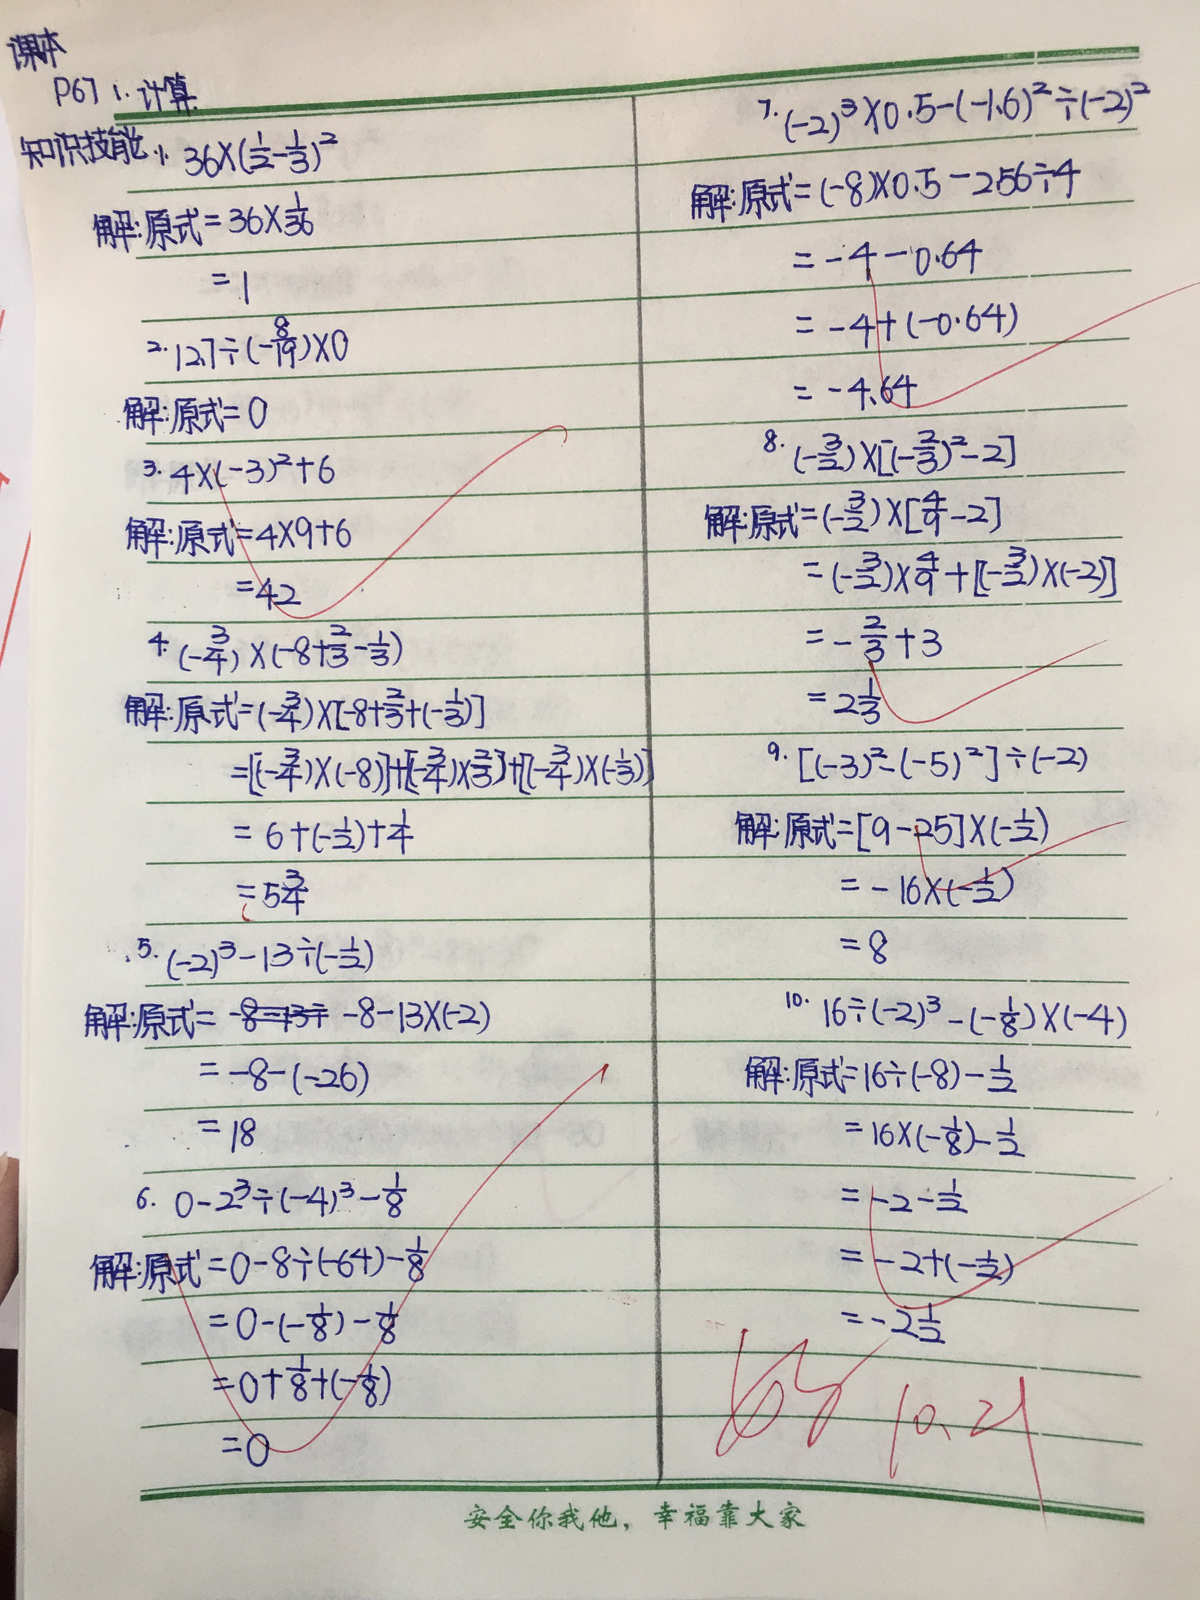 课本
P67 1. 计算
知识技能 1. 36×(1/2-1/3)²
解:原式=36×1/36
=1
2. 12.7÷(-8/19)×0
解:原式=0
3. 4×(-3)²+6
解:原式=4×9+6
=42
4. (-3/4)×(-8+2/3-1/3)
解:原式=(-3/4)×[-8+2/3+(-1/3)]
=[(-3/4)×(-8)]+[(-3/4)×2/3]+[(-3/4)×(-1/3)]
=6+(-1/2)+1/4
=5 3/4
5. (-2)³-13÷(-1/2)
解:原式= -8-13÷ -8-13×(-2)
=-8-(-26)
=18
6. 0-2³÷(-4)³-1/8
解:原式=0-8÷(-64)-1/8
=0-(-1/8)-1/8
=0+1/8+(-1/8)
=0
7. (-2)³×0.5-(-1.6)²÷(-2)²
解:原式=(-8)×0.5-2.56÷4
=-4-0.64
=-4+(-0.64)
=-4.64
8. (-3/2)×[(-2/3)²-2]
解:原式=(-3/2)×[4/9-2]
=(-3/2)×4/9+[(-3/2)×(-2)]
=-2/3+3
=2 1/3
9. [(-3)²-(-5)²]÷(-2)
解:原式=[9-25]×(-1/2)
=-16×(-1/2)
=8
10. 16÷(-2)³-(-1/8)×(-4)
解:原式=16÷(-8)-1/2
=16×(-1/8)-1/2
=-2-1/2
=-2+(-1/2)
=-2 1/2
好 10.21
安全你我他，幸福靠大家